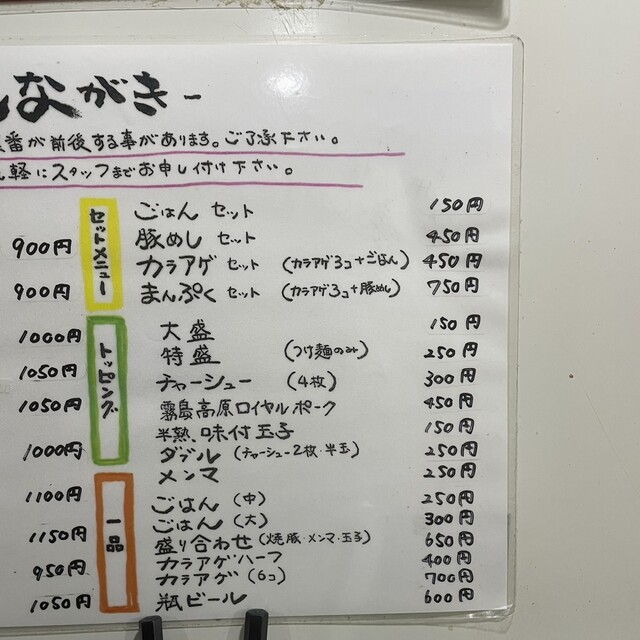 ながき-
番が前後する事があります。ご了承下さい。
軽にスタッフまでお申し付け下さい。
900円
900円
1000円
1050円
1050円
1000円
1100円
1150円
950円
1050円
セットメニュー
ごはん セット 150円
豚めし セット 450円
カラアゲ セット (カラアゲ3コ+ごはん) 450円
まんぷく セット (カラアゲ3コ+豚めし) 750円
トッピング
大盛 150円
特盛 (つけ麺のみ) 250円
チャーシュー (4枚) 300円
霧島高原ロイヤルポーク 450円
半熟、味付玉子 150円
ダブル (チャーシュー2枚・半玉) 250円
メンマ 250円
一品
ごはん (中) 250円
ごはん (大) 300円
盛り合わせ (焼豚・メンマ・玉子) 650円
カラアゲハーフ 400円
カラアゲ (6コ) 700円
瓶ビール 600円